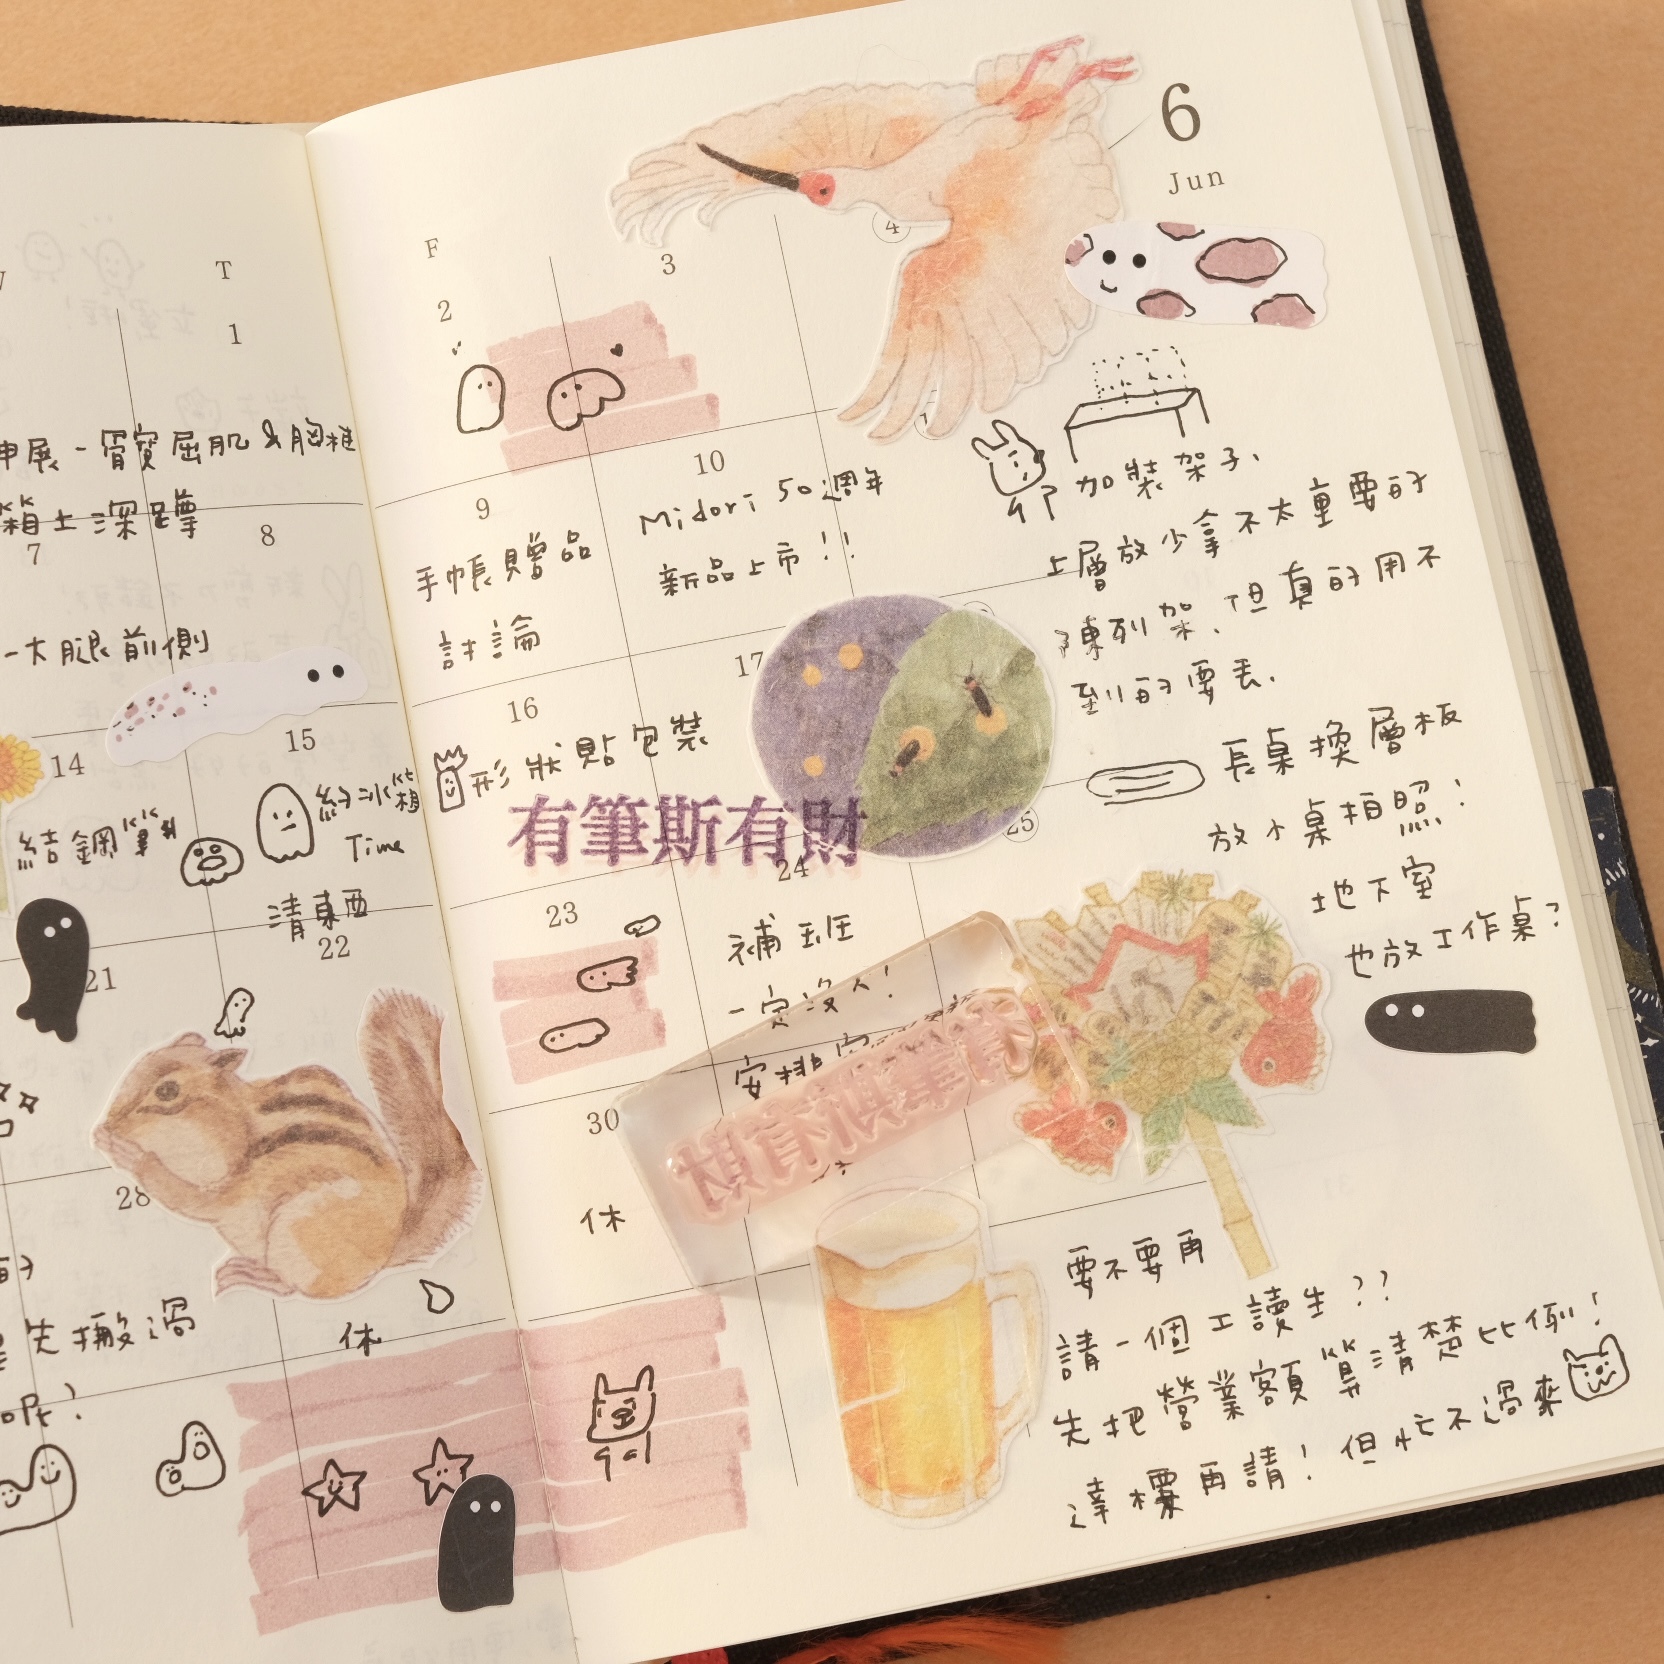 6
Jun
T
F
1
2
3
4
申展-髂腰屈肌&胸椎
箱上深蹲
7
8
9
10
手帳贈品
討論
Midori 50週年
新品上市!!
行 加裝架子、
上層放少拿不太重要的
陳列架、但真的用不
到的要丟、
-大腿前側
14
15
16
17
結鋼筆
給冰箱
Time
清東西
形狀貼包裝
有筆斯有財
長桌換層板
放小桌拍照!
地下室
也放工作桌?
21
22
23
24
25
補班
一定沒人!
安排
28
30
休
休
先搬過
呢?
有筆斯有財
要不要再
請一個工讀生??
先把營業額算清楚比例!
達標再請!但忙不過來